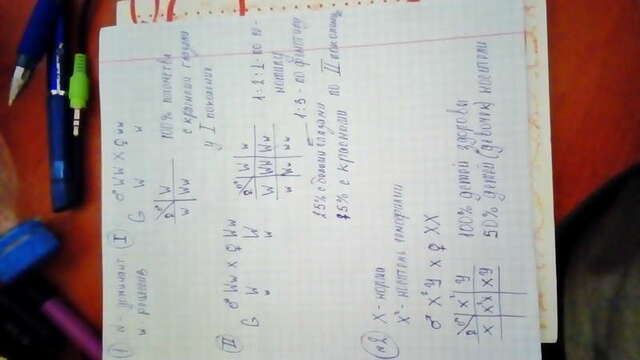 1) W - доминант
w - рецессив
I
♂ WW X ♀ ww
G W w
♀♂ W
w Ww
100% потомства
с красными глазами
у I поколения
II
♂ Ww X ♀ Ww
G W W
w w
♀♂ W w
W WW Ww
w Ww ww
1:2:1 - по ге-
нотипу
1:3 - по фенотипу
25% с белыми глазами
75% с красными
во II поколении
№2 X - норма
X - носитель гемофилии
♂ X Y X ♀ XX
♀♂ X Y
X X X XY
100% детей здоровы
50% детей (девочек) носители